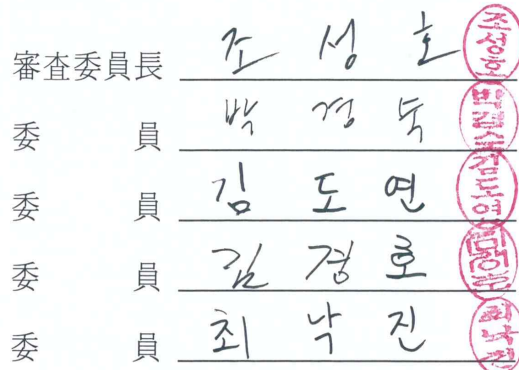 審査委員長 조 성 호 조성호
委 員 박 경 숙 박경숙
委 員 김 도 연 김도영
委 員 김 경 호
委 員 최 낙 진 최낙진